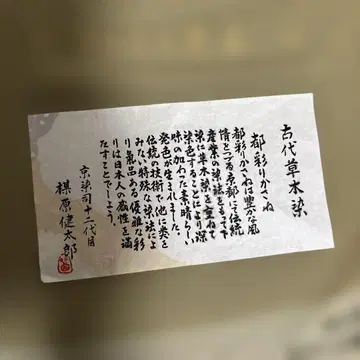 古代草木染
都彩りかさね
都彩りかさねは豊かな風
情と二つる京都に伝統
産業の染法をもって下
染に草木染を重ねて
染色することにより深
味の加わった素晴らしい
発色がうまれました。
伝統の技術で他に類を
みない特殊な染法によ
り氣品ある優雅な彩
りは日本人の感性を満
たすことでしょう。
京染司十二代目
槇原健太郎